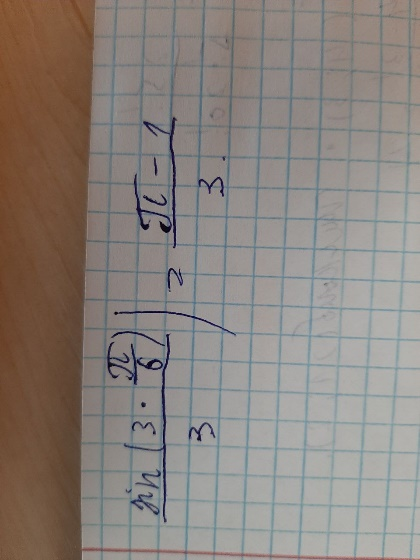 sin(3 · π/6)/3) = π - 1/3.